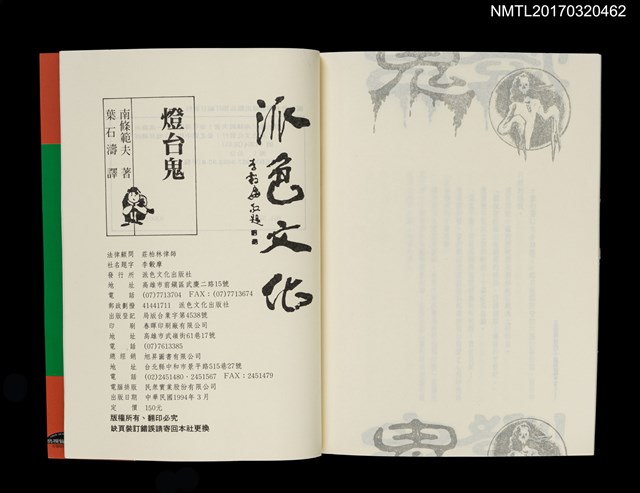 NMTL20170320462
燈台鬼
南條範夫 著
葉石濤 譯
派色文化
法律顧問 莊柏林律師
社名題字 李轂摩
發行所 派色文化出版社
地址 高雄市前鎮區武慶二路15號
電話 (07)7713704 FAX:(07)7713674
郵政劃撥 41441711 派色文化出版社
出版登記 局版台業字第4538號
印刷 春暉印刷廠有限公司
地址 高雄市武嶺街61巷17號
電話 (07)7613385
總經銷 旭昇圖書有限公司
地址 台北縣中和市景平路515巷27號
電話 (02)2451480．2451567 FAX:2451479
電腦排版 民眾實業股份有限公司
出版日期 中華民國1994年3月
定價 150元
版權所有、翻印必究
缺頁裝訂錯誤請寄回本社更換
鬼